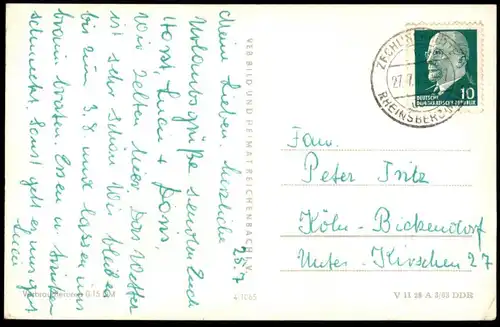 28.7
Meine Lieben. Herzliche
Urlaubsgrüße senden Euch
Horst, Luci + Doris,
Wir zelten hier. Das Wetter
ist sehr schön. Wir bleiben
bis zum 3.8 und lassen uns
braun braten. Essen u. trinken
schmeckt. Sonst geht es uns gut
Luci
VEB BILD UND HEIMAT REICHENBACH I. V.
Verbraucherpreis 0,15 DM
4/1265
V 11 28 A 3/63 DDR
RHEINSBERG
27.7.
DEUTSCHE
DEMOKRATISCHE REPUBLIK
10
Fam.
Peter Fritz
Köln-Bickendorf
Unter-Kirschen 27